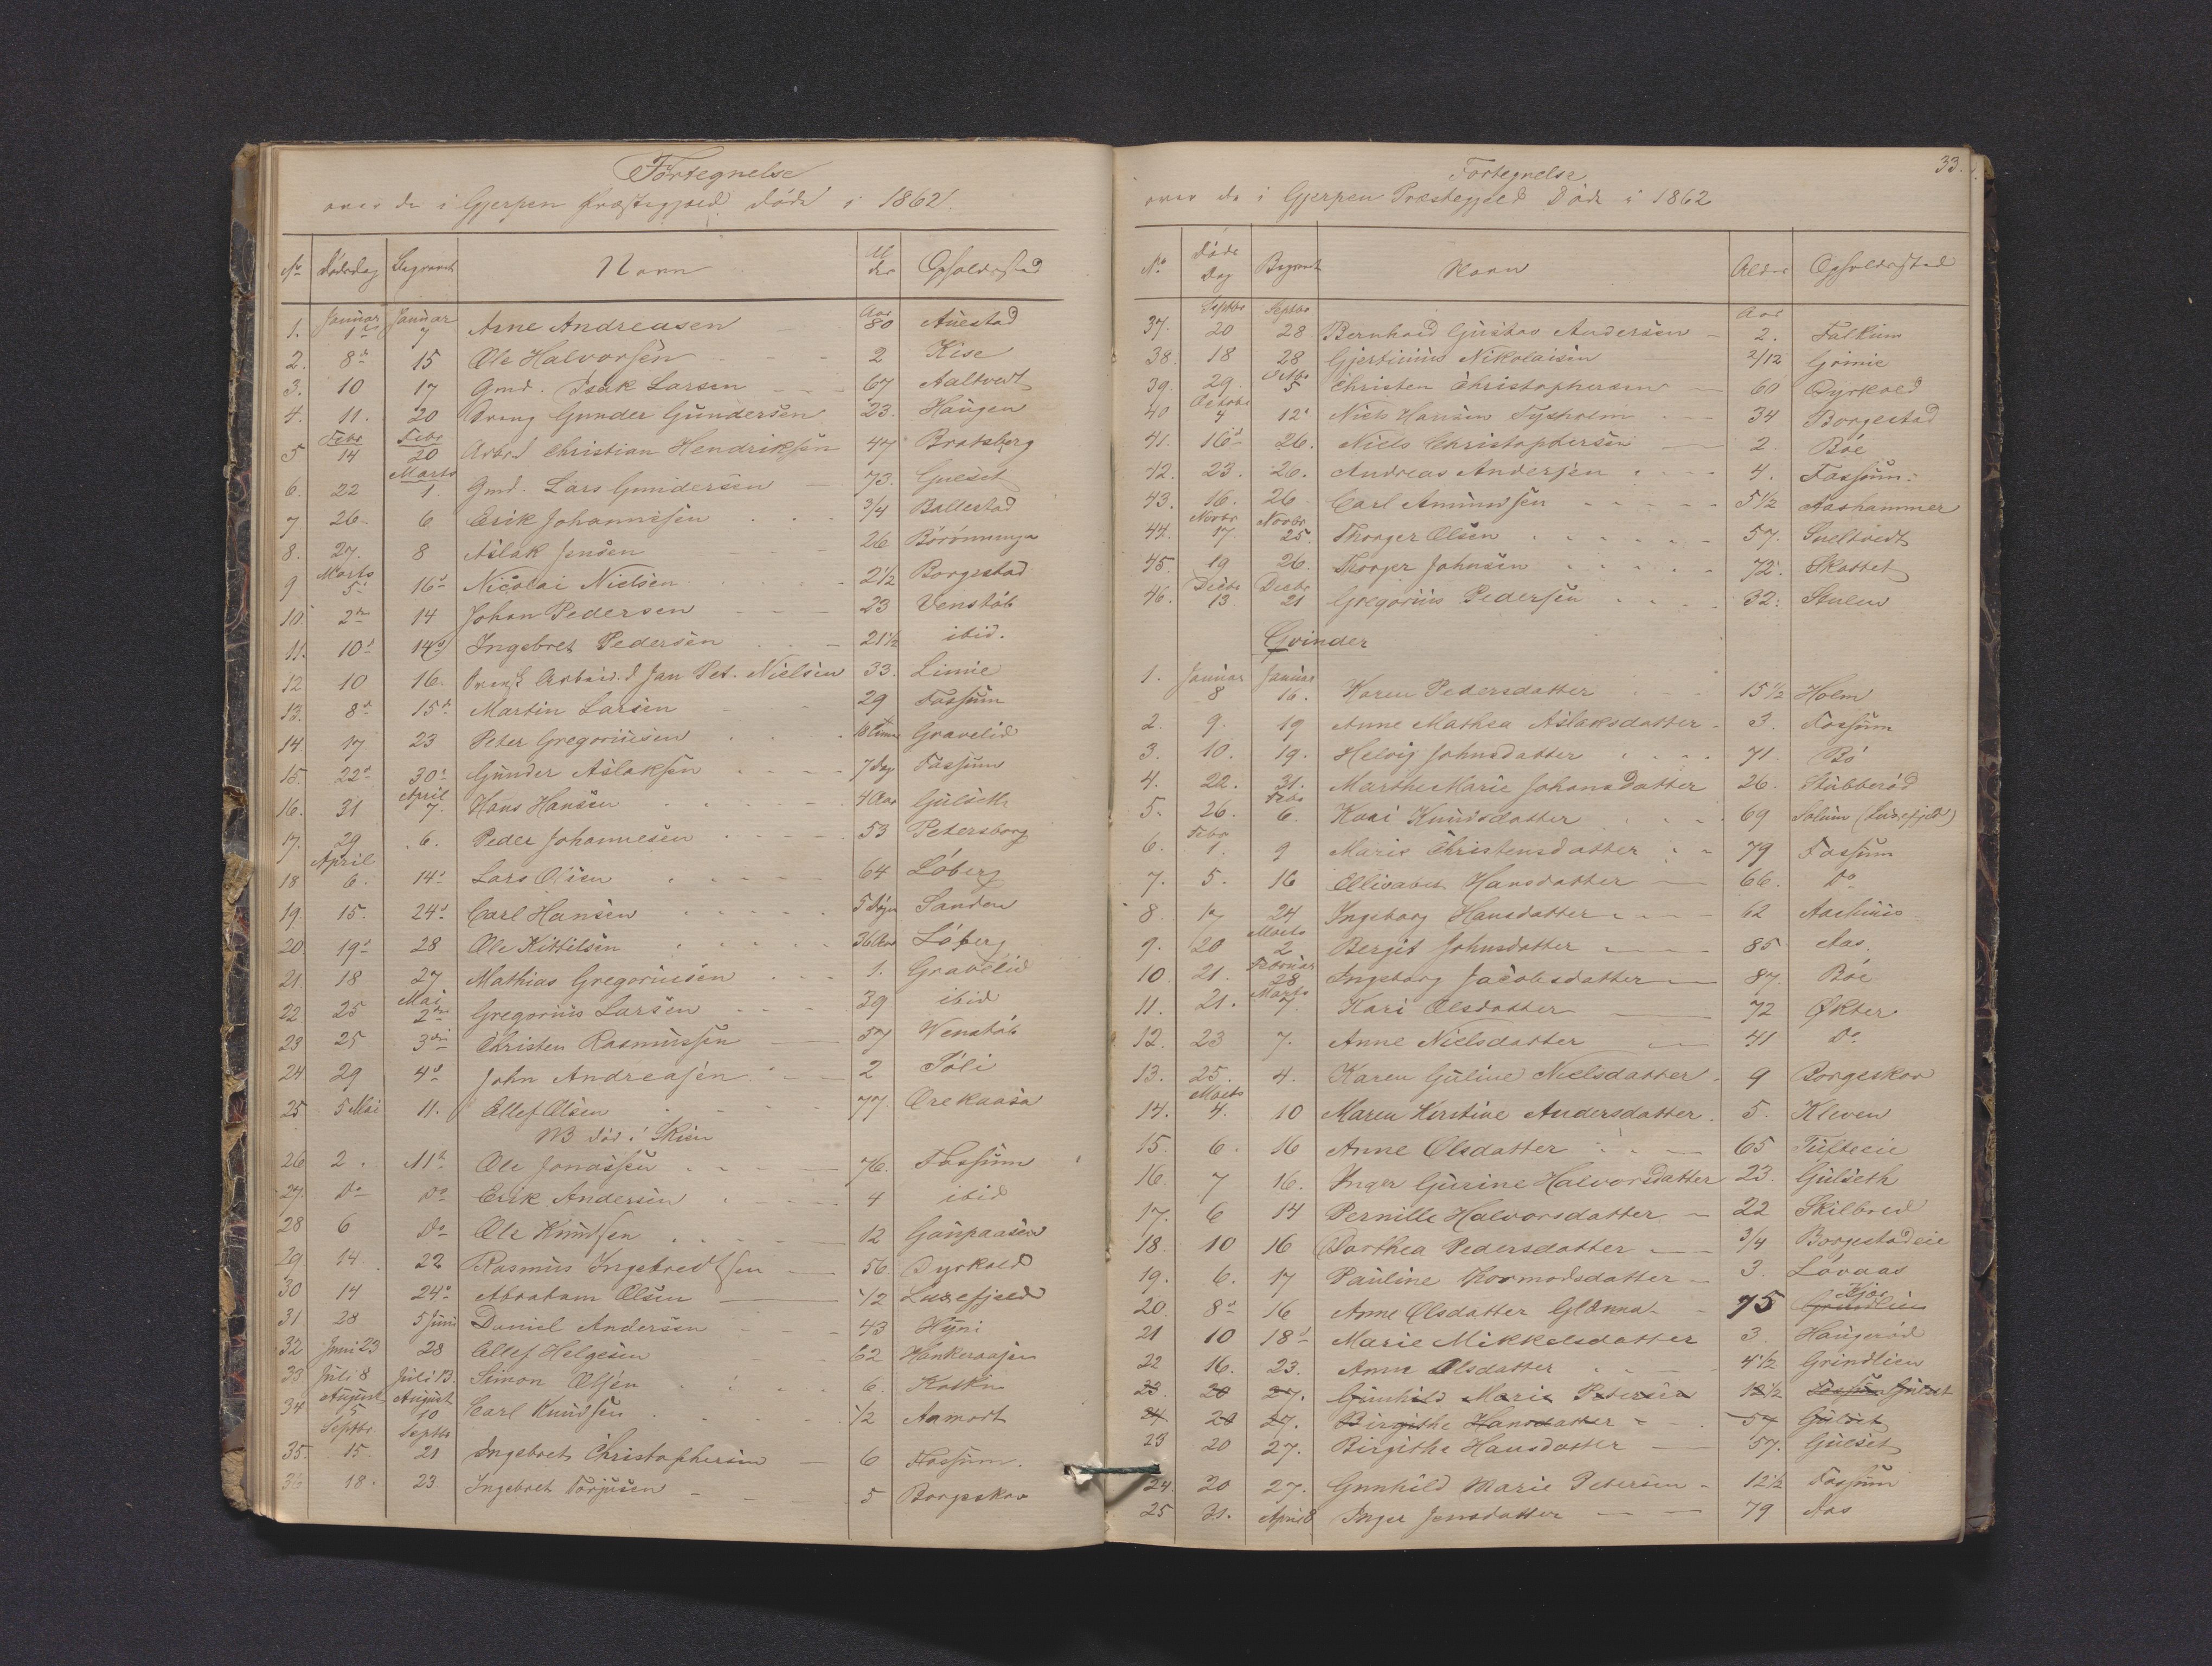 Fortegnelse
over de i Gjerpen Præstegjæld døde i 1862
No Dødsdag Begravet Navn Alder Opholdssted
Januar Januar Aar
1. 1ste 7 Arne Andreasen 80 Auestad
2. 8de 15 Ole Halvorsen 2 Kise
3. 10 17 Gmd. Isak Larsen 67 Aaltvedt
4. 11. 20 Dreng Gunder Gundersen 23. Haugen
Febr Febr
5 14 20 Arbd Christian Hendriksen 47 Bratsberg
Marts
6. 22 1. Gmd. Lars Gundersen 73. Gulset
7. 26 6 Erik Johannesen 3/4 Ballestad
8. 27. 8 Aslak Jensen 26
Marts
9 5 16 Nicolai Nielsen 2 1/2 Borgestad
10. 2 14 Johan Pedersen 23 Venstøb
11. 10 14 Ingebret Pedersen 21 1/2 ibid.
12 10 16. Jan Pet. Nielsen 33. Limie
13. 8 15 Martin Larsen 29 Fossum
14 17 23 Peter Gregoriusen Gravelid
15 22 30 Gunder Aslaksen 7 Dag Fossum
April
16. 31 7. Hans Hansen 4 Aar Gulseth
17. 29 6. Peder Johannesen 53 Petersborg
April
18 6. 14 Lars Olsen 64 Løberg
19. 15. 24 Carl Hansen 5 Sanden
20. 19 28 Ole Kittilsen 36 Aar Løberg
21. 18 27 Mathias Gregoriusen 1. Gravelid
Mai
22 25 2 Gregorius Larsen 39 ibid
23 25 3 Christen Rasmussen 57 Wenstøb
24 29 4 John Andreasen 2 Føli
25 5 Mai 11. Ellef Olsen 77. Orekaasa
NB død i Skien
26 2. 11 Ole Jonassen 76. Fossum
27. Do Do Erik Andersen 4 ibid
28 6 Do Ole Knudsen 12 Gaupaasen
29 14. 22 Rasmus Ingebredtsen 56 Dyrkold
30 14 24 Abraham Olsen 1/2 Luxefjeld
31 28 5 Juni Daniel Andersen 43 Hyni
32 Juni 23 28 Ellef Helgesen 62 Hankeraasen
33 Juli 8 Juli 13. Simon Olsen 6.
August August
34 5 10 Carl Knudsen 1/2 Aamodt
Septbr Septbr
35. 15. 21 Ingebret Christophersen 6 Fossum.
36 18. 23 Ingebret Torjusen 5 Borgeskov
33.
Fortegnelse
over de i Gjerpen Præstegjæld Døde i 1862
No Døds Dag Begravet Navn Alder Opholdssted
Septbr Septbr Aar
37. 20 28 Bernhard Gustav Andersen 2. Falkum
38. 18 28 Gjertinius Nikolaisen 2/12 Grinie
Octbr
39. 29. 5 Christen Christophersen 60 Dyrkold
Octobr
40 4 12 Niels Hansen Sysholm 34 Borgestad
41. 16 26. Niels Christophersen 2. Bøe
42. 23. 26. Andreas Andersen 4. Fossum
43. 16. 26 Carl Amundsen 5 1/2 Aashammer
Novbr Novbr
44. 17 25. Thorger Olsen 57. Sneltvedt
45. 19 26. Thorger Johnsen 72. Skottet
Decbr Decbr
46. 13 21 Gregorius Pedersen 32. Stulen
Qvinder
1. Januar Januar
8 16. Karen Pedersdatter 15 1/2 Holm
2. 9. 19 Anne Mathea Aslaksdatter 3. Fossum
3. 10. 19. Helvig Johnsdatter 71. Bø
4. 22. 31. Marthe Marie Johansdatter 26. Stubberød
Febr
5. 26. 6. Kari Knudsdatter 69 Solum (Luxefjeld)
Febr
6. 1. 9 Maria Christensdatter 79 Fossum
7. 5. 16 Ellisabet Hansdatter 66. Do
8. 17 24 Ingeborg Hansdatter 62 Aarhuus
Marts
9. 20 2 Bergit Johnsdatter 85 Aas
Februar
10 21. 28 Ingeborg Jacobsdatter 87. Bøe
Marts
11. 21. 7. Kari Olsdatter 72 Økter
12. 23 7. Anne Nielsdatter 41 Do
13. 25. 4. Karen Guline Nielsdatter 9 Borgeskov
Marts
14. 4. 10 Maren Kirstine Andersdatter 5. Kleven
15. 6. 16 Anne Olsdatter 65 Tufteeie
16. 7 16. Inger Gurine Halvorsdatter 23. Gulseth
17. 6 14 Pernille Halvorsdatter 22 Skilbred
18. 10 16 Dorthea Pedersdatter 3/4 Borgestadeie
19. 6. 17 Pauline Thormodsdatter 3. Løvaas
Kjær
20. 8 16 Anne Olsdatter Glænna 75 Grindlien
21 10 18 Marie Mikkelsdatter 3. Haugerød
22 16. 23. Anne Olsdatter 4 1/2 Grindlien
23. 20 27. Gunhild Marie Petersen 12 1/2 Fossum Gulset
24. 20 27. Birgithe Hansdatter 57 Gulset
23 20 27. Birgithe Hansdatter 57. Gulset
24. 20 27. Gunhild Marie Petersen 12 1/2 Fossum
25 31. April 8 Inger Jensdatter 79 Aas